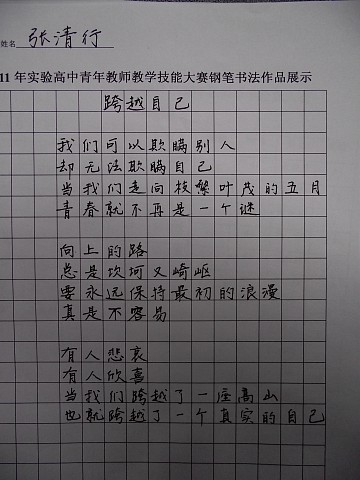 姓名 张清行
11年实验高中青年教师教学技能大赛钢笔书法作品展示
跨越自己
我们可以欺瞒别人
却无法欺瞒自己
当我们走向枝繁叶茂的五月
青春就不再是一个谜
向上的路
总是坎坷又崎岖
要永远保持最初的浪漫
真是不容易
有人悲哀
有人欣喜
当我们跨越了一座高山
也就跨越了一个真实的自己